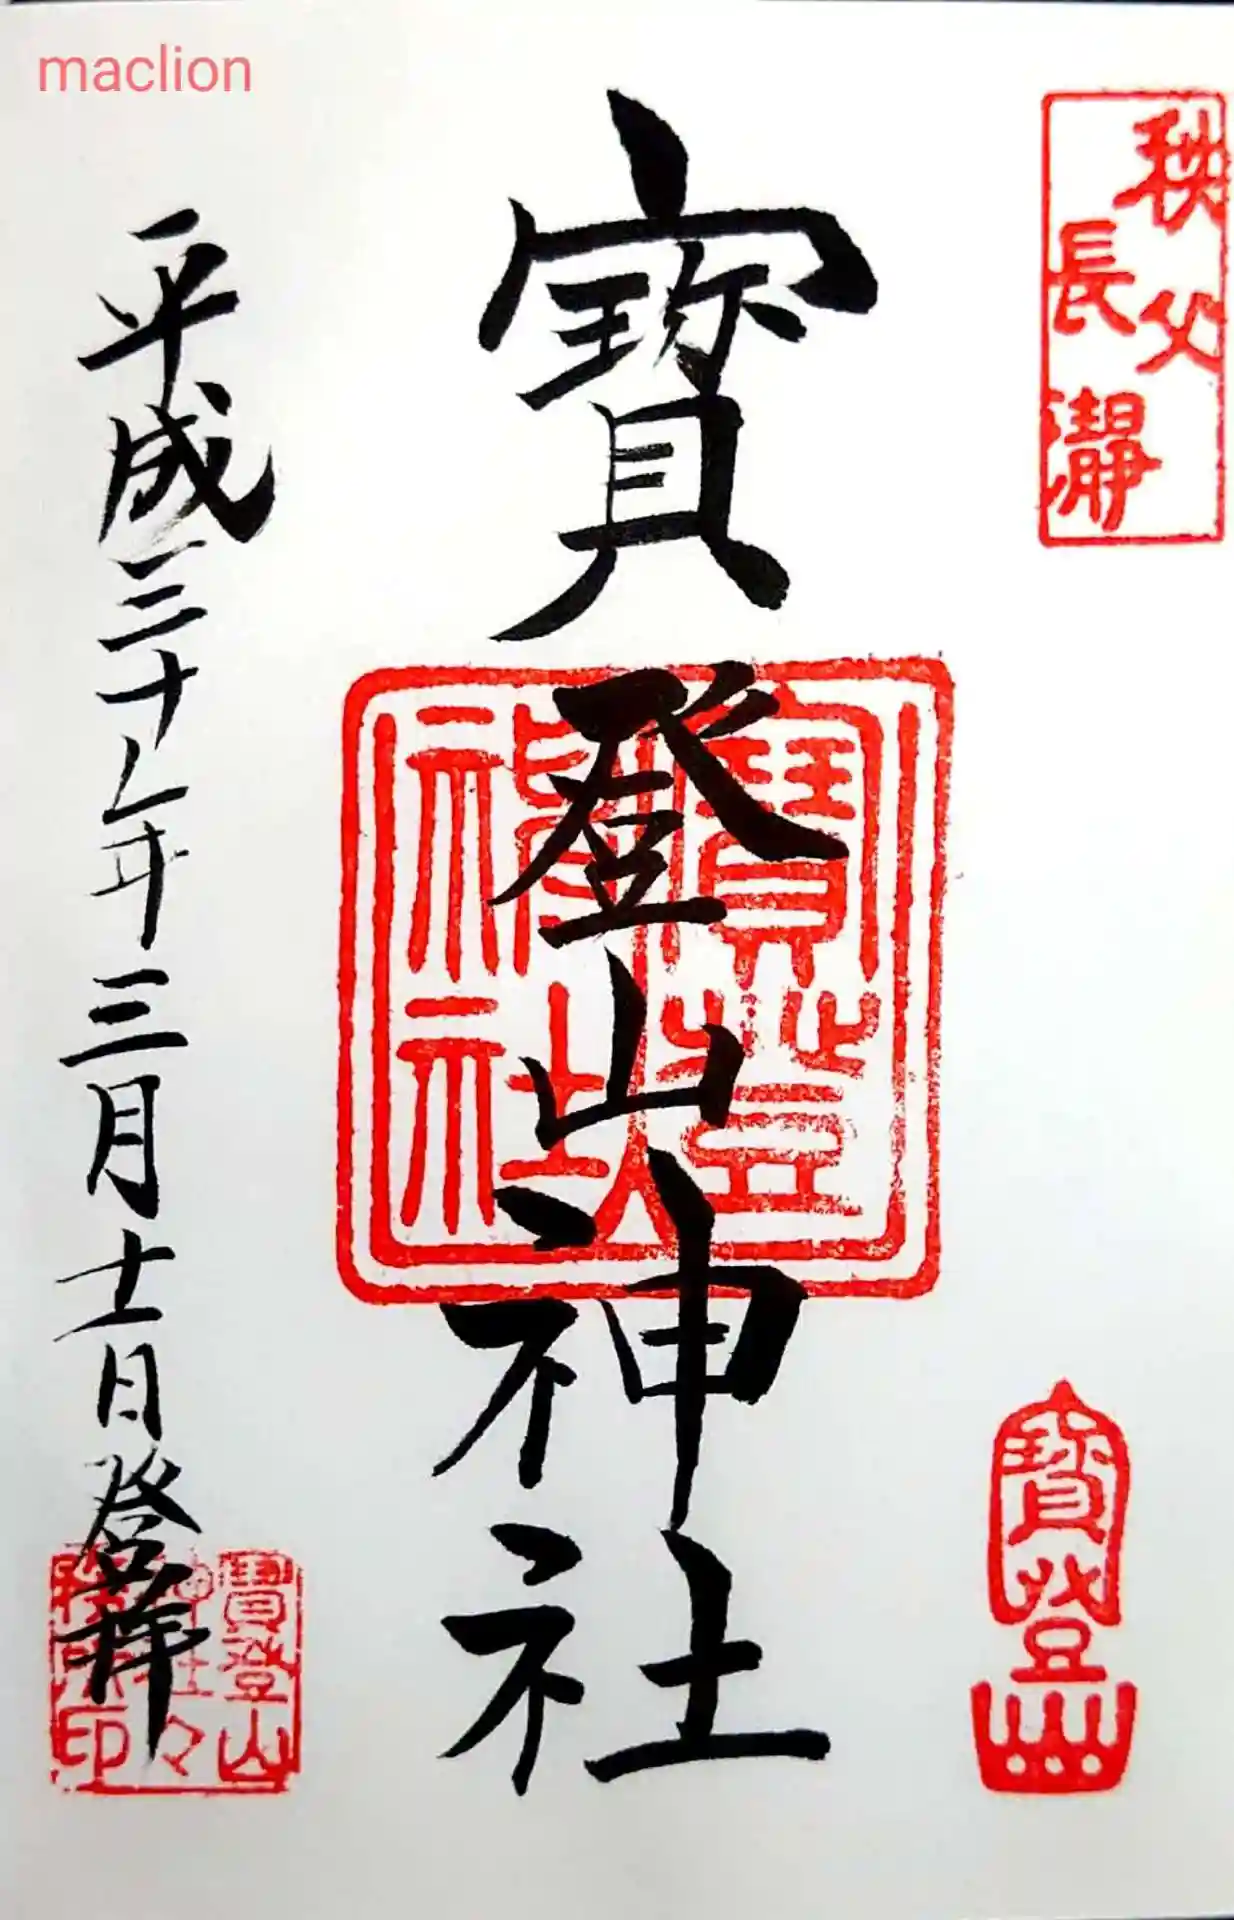 maclion
秩父
長瀞
寶登山
寶登山神社
寶登山神社
平成三十年三月十一日登拝
寶登山
神社々
務所印